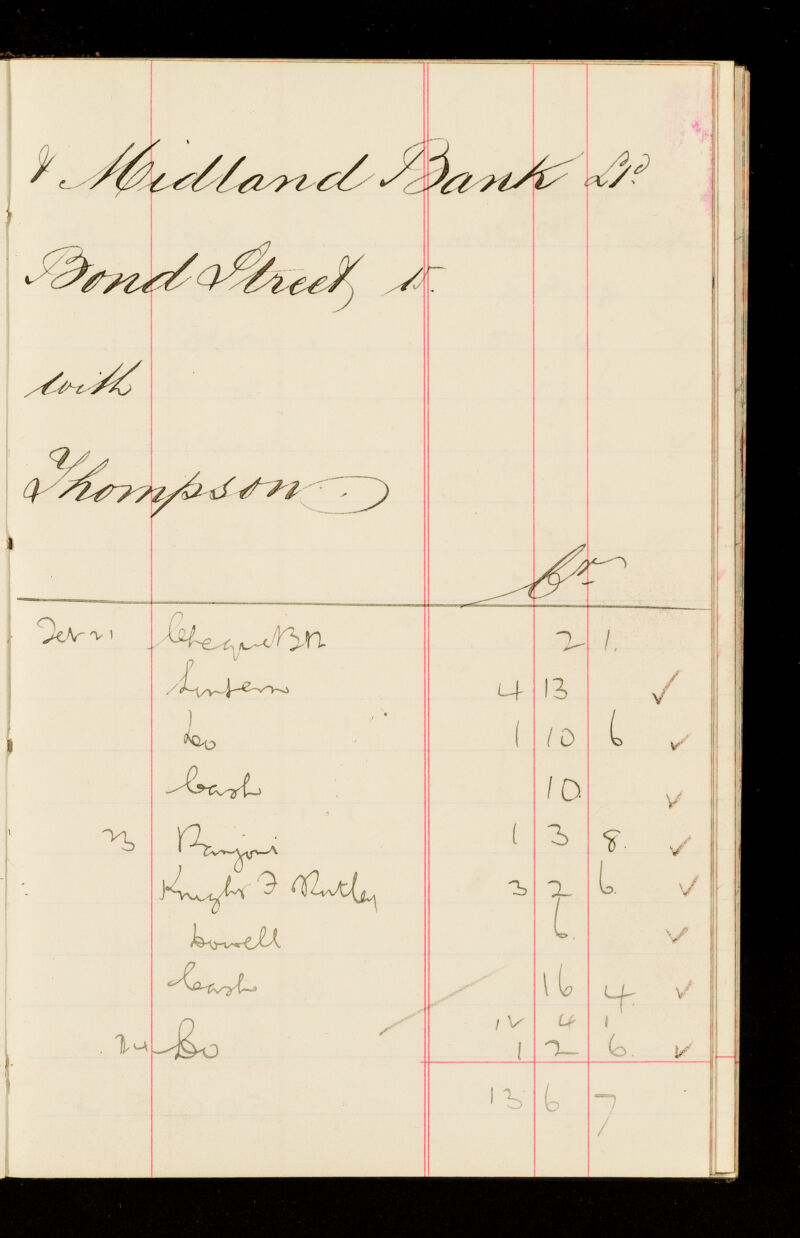 & Midland Bank Ltd.
Bond Street, 15.
with
Thompson.
Cr
Feb 21 Cheque Bk 2 1.
4 13 ✓
Do 1 10 6 ✓
Cash 10. ✓
23 1 3 8. ✓
Knight F Rutley 3 2 6. ✓
Howell 6. ✓
Cash 16 4. ✓
12 4 1
24 Do 1 2 6. ✓
13 6 7